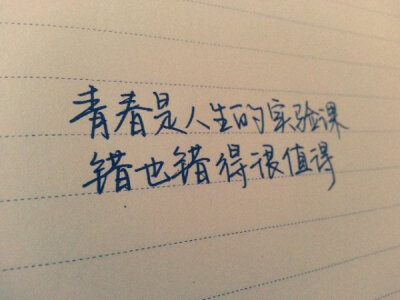 青春是人生的实验课
错也错得很值得